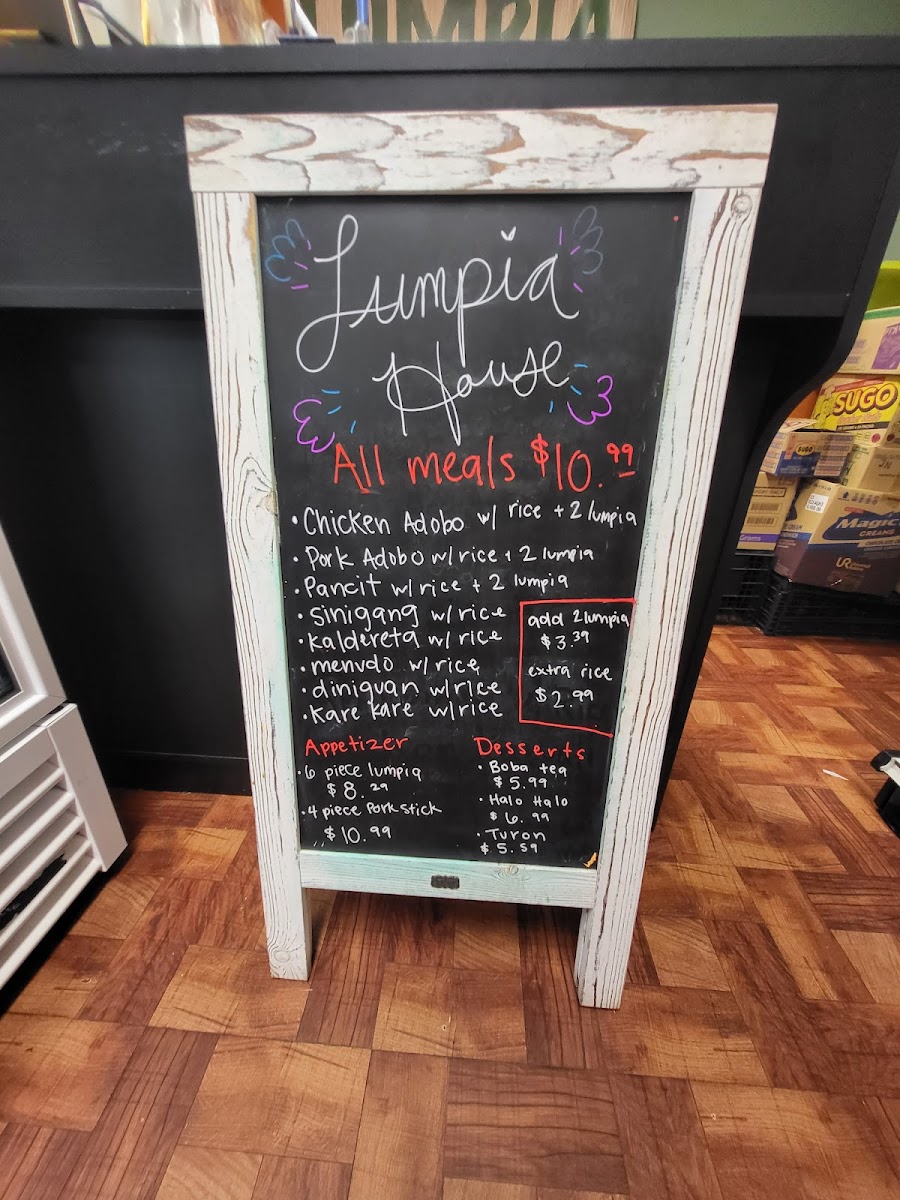 LUMPIA
Lumpia
House
All meals $10.99
• Chicken Adobo w/ rice + 2 lumpia
• Pork Adobo w/ rice + 2 lumpia
• Pancit w/ rice + 2 lumpia
• sinigang w/ rice
• kaldereta w/ rice
• menudo w/ rice
• diniguan w/ rice
• Kare kare w/ rice
add 2 lumpia
$3.39
extra rice
$2.99
Appetizer
• 6 piece lumpia
$8.29
• 4 piece Pork stick
$10.99
Desserts
• Boba tea
$5.99
• Halo Halo
$6.99
• Turon
$5.59
SUGO
Magic
CREAMS